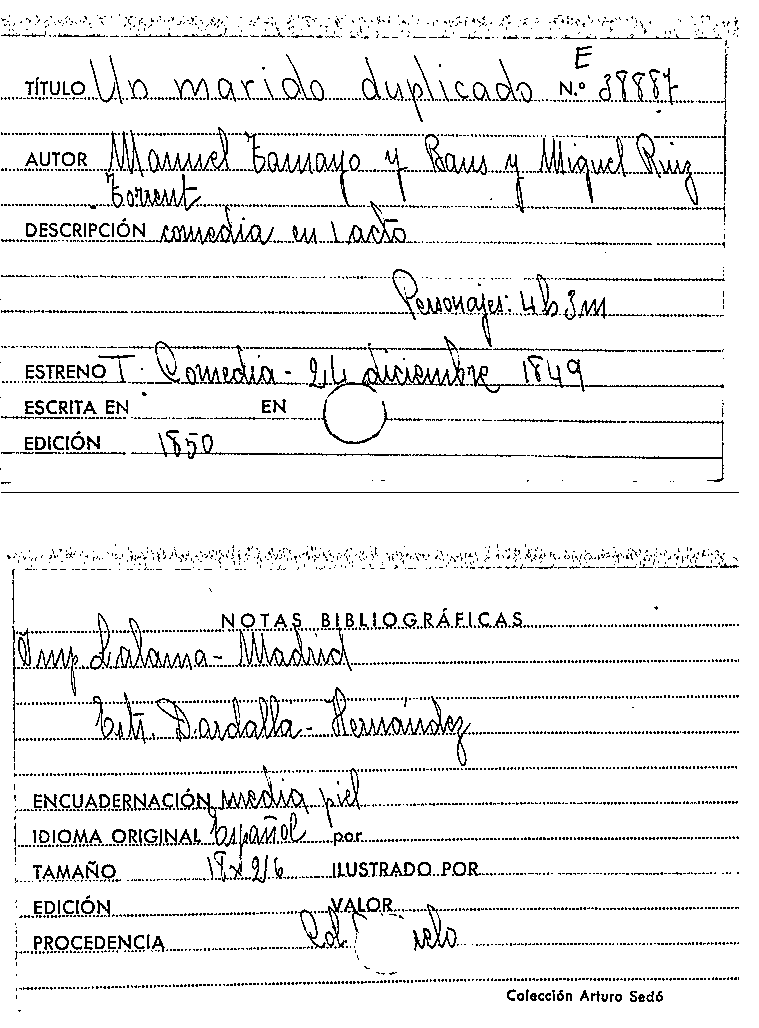 E
TÍTULO Un marido duplicado N.º 38887
AUTOR Manuel Tamayo y Baus y Miguel Ruiz
Torrent
DESCRIPCIÓN comedia en 1 acto
Personajes: 4h 3m
ESTRENO T. Comedia - 24 diciembre 1849
ESCRITA EN EN
EDICIÓN 1850
NOTAS BIBLIOGRÁFICAS
Imp Lalama - Madrid
Estr. Dardalla - Hernández
ENCUADERNACIÓN media piel
IDIOMA ORIGINAL Español por
TAMAÑO 18 x 26 ILUSTRADO POR
EDICIÓN VALOR
PROCEDENCIA
Colección Arturo Sedó